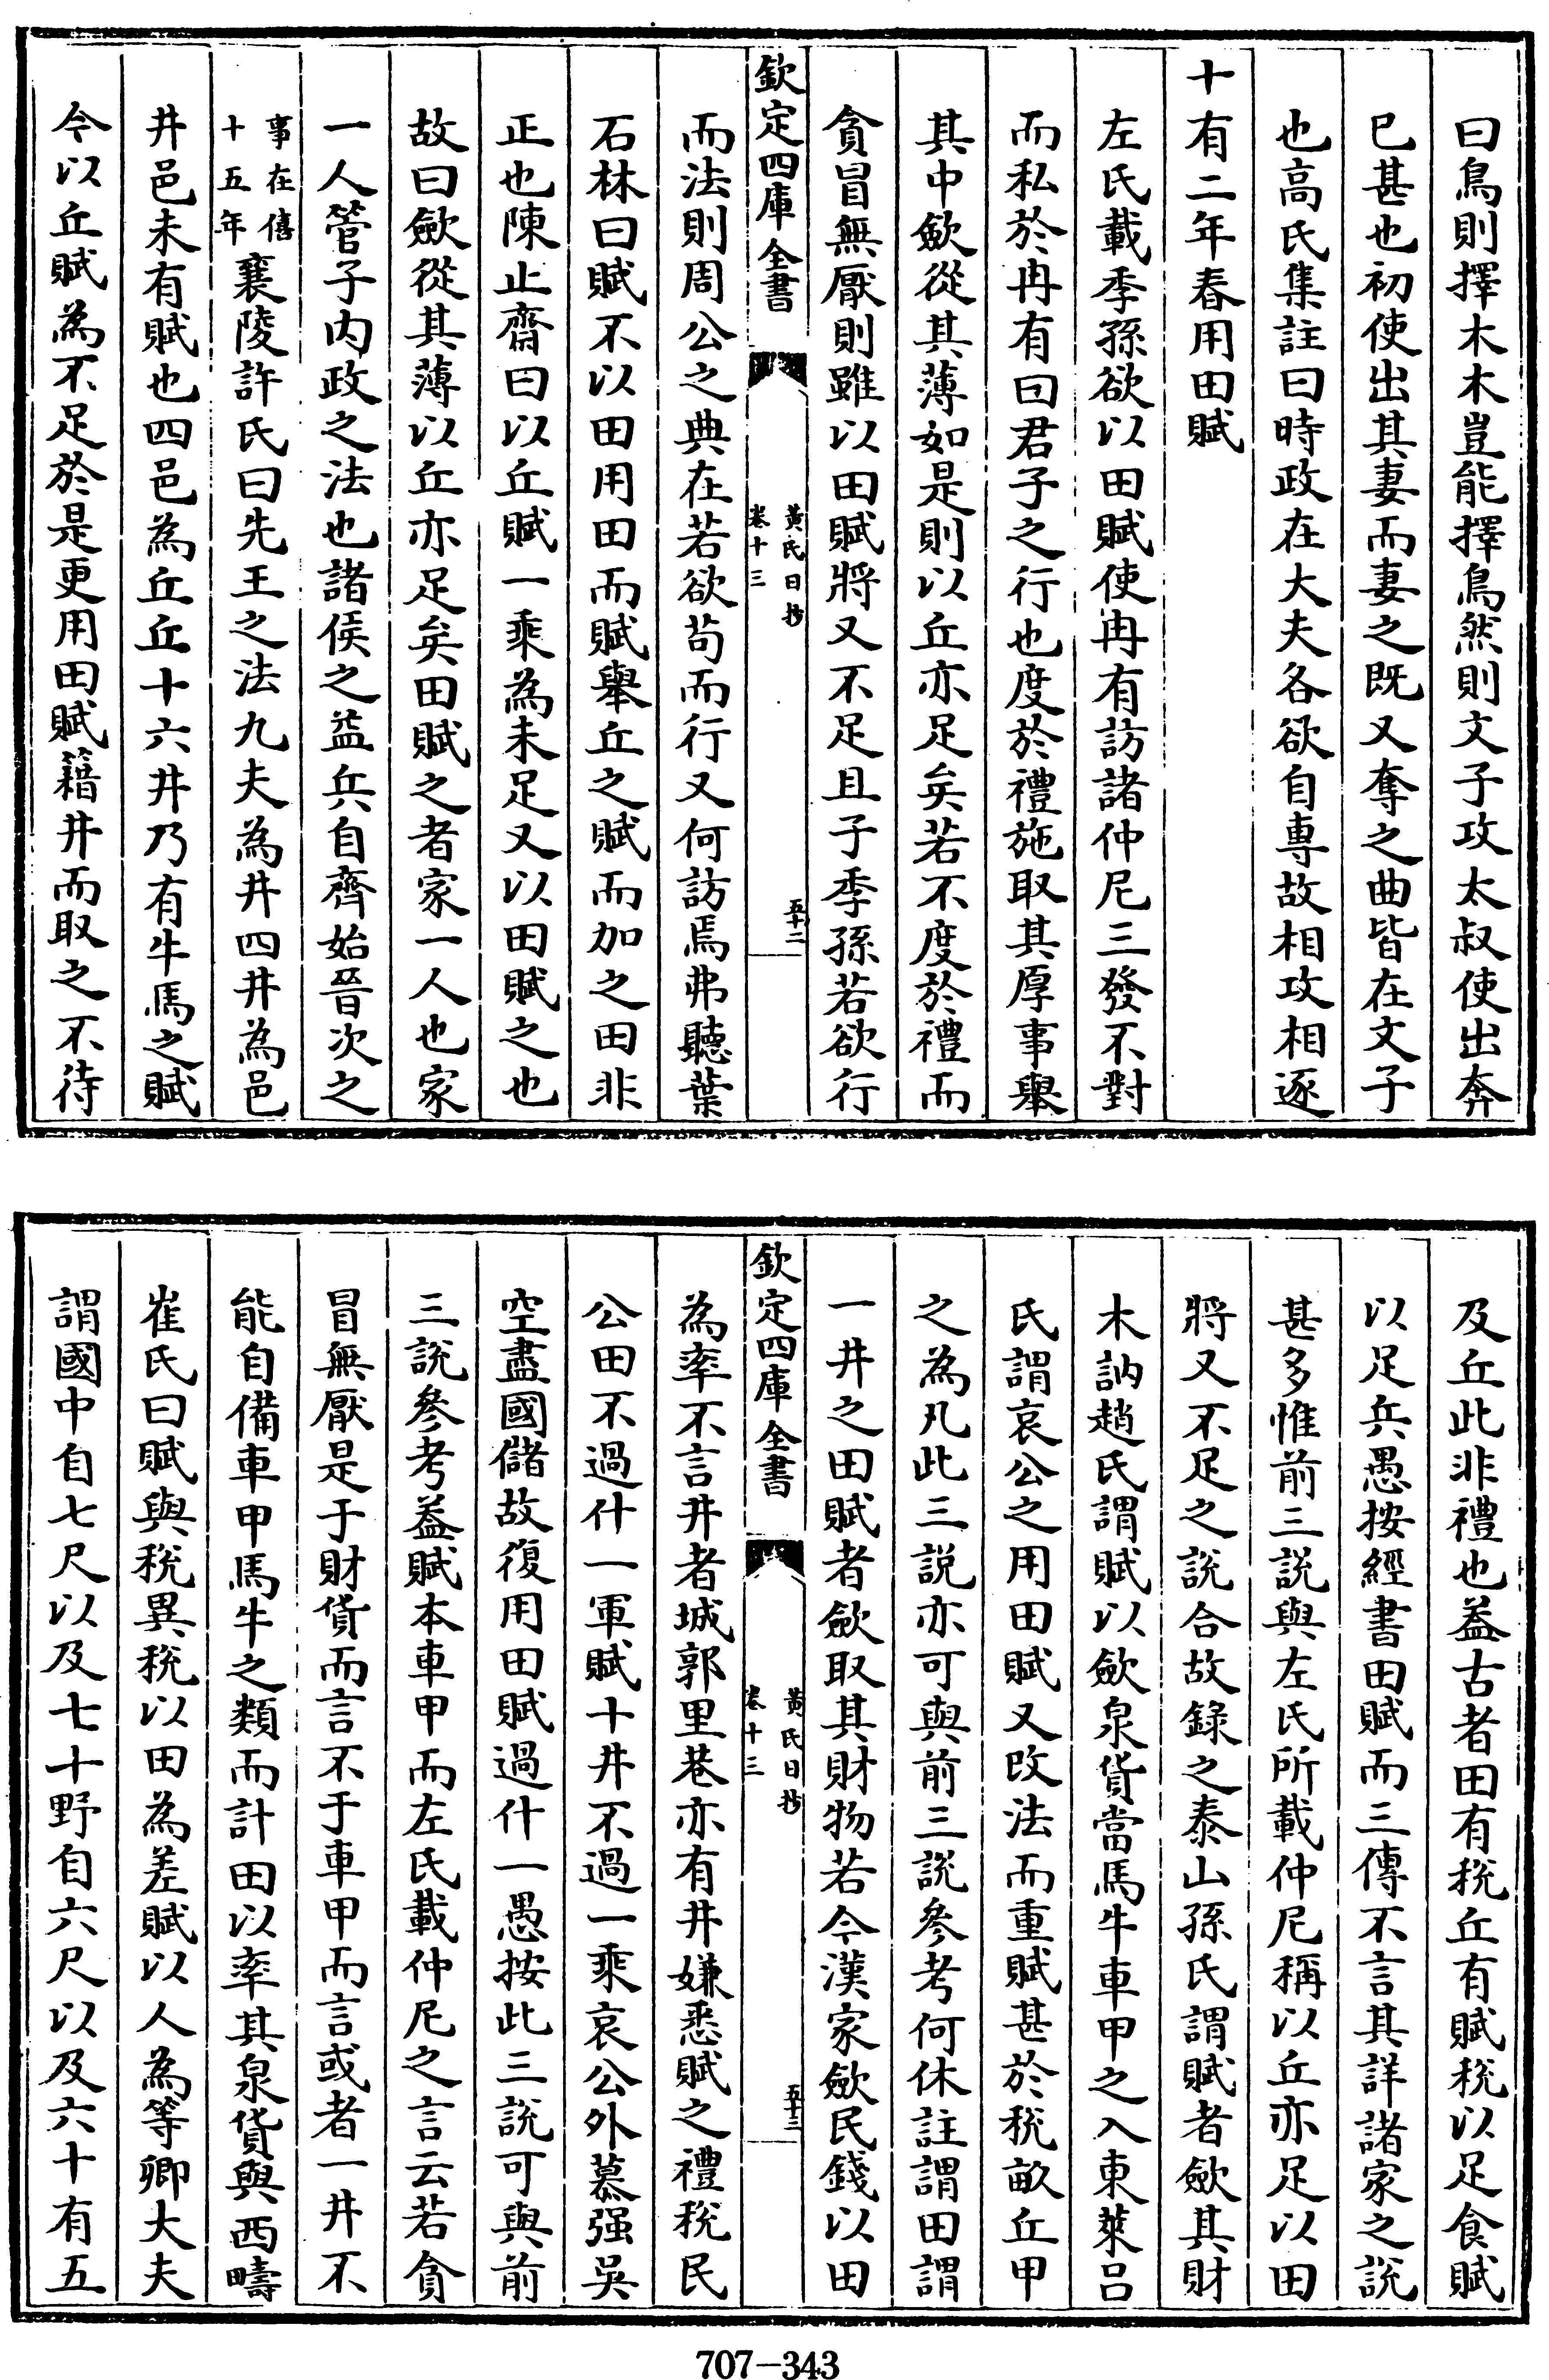 曰鳥則擇木木豈能擇鳥然則文子攻太叔使出奔
已甚也初使出其妻而妻之既又奪之曲皆在文子
也高氏集註曰時政在大夫各欲自專故相攻相逐
十有二年春用田賦
左氏載季孫欲以田賦使冉有訪諸仲尼三發不對
而私於冉有曰君子之行也度於禮施取其厚事舉
其中斂從其薄如是則以丘亦足矣若不度於禮而
貪冒無厭則雖以田賦將又不足且子季孫若欲行
欽定四庫全書
黃氏日抄
卷十三
五十二
而法則周公之典在若欲苟而行又何訪焉弗聽葉
石林曰賦不以田用田而賦舉丘之賦而加之田非
正也陳止齋曰以丘賦一乘為未足又以田賦之也
故曰斂從其薄以丘亦足矣田賦之者家一人也家
一人管子内政之法也諸侯之益兵自齊始晉次之
事在僖
十五年襄陵許氏曰先王之法九夫為井四井為邑
井邑未有賦也四邑為丘丘十六井乃有牛馬之賦
今以丘賦為不足於是更用田賦籍井而取之不待
及丘此非禮也葢古者田有稅丘有賦稅以足食賦
以足兵愚按經書田賦而三傳不言其詳諸家之說
甚多惟前三說與左氏所載仲尼稱以丘亦足以田
將又不足之說合故錄之泰山孫氏謂賦者斂其財
木訥趙氏謂賦以斂泉貨當馬牛車甲之入東萊吕
氏謂哀公之用田賦又改法而重賦甚於稅畝丘甲
之為凡此三說亦可與前三說參考何休註謂田謂
一井之田賦者斂取其財物若今漢家斂民錢以田
欽定四庫全書
黃氏日抄
卷十三
五十三
為率不言井者城郭里巷亦有井嫌悉賦之禮稅民
公田不過什一軍賦十井不過一乘哀公外慕强吳
空盡國儲故復用田賦過什一愚按此三說可與前
三說參考葢賦本車甲而左氏載仲尼之言云若貪
冒無厭是于財貨而言不于車甲而言或者一井不
能自備車甲馬牛之類而計田以率其泉貨與西疇
崔氏曰賦與稅異稅以田為差賦以人為等卿大夫
謂國中自七尺以及七十野自六尺以及六十有五
707-343